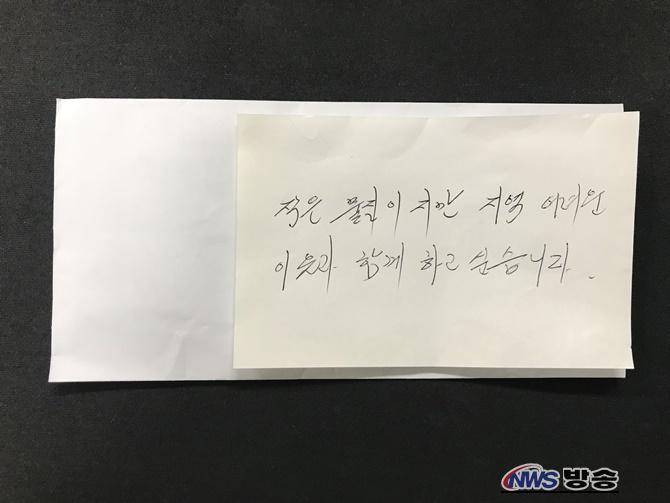 작은 물질이지만 지역 어려운
이웃과 함께 하고 싶습니다.
NWS방송